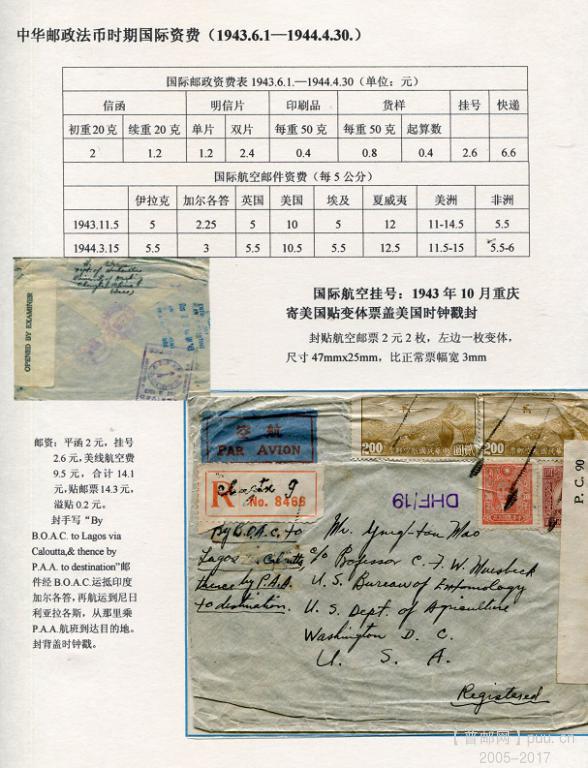 中华邮政法币时期国际资费（1943.6.1—1944.4.30.）
国际邮政资费表 1943.6.1.—1944.4.30（单位：元）
信函 明信片 印刷品 货样 挂号 快递
初重20克 续重20克 单片 双片 每重50克 每重50克 起算数
2 1.2 1.2 2.4 0.4 0.8 0.4 2.6 6.6
国际航空邮件资费（每5公分）
伊拉克 加尔各答 英国 美国 埃及 夏威夷 美洲 非洲
1943.11.5 5 2.25 5 10 5 12 11-14.5 5.5
1944.3.15 5.5 3 5.5 10.5 5.5 12.5 11.5-15 5.5-6
国际航空挂号：1943年10月重庆
寄美国贴变体票盖美国时钟戳封
封贴航空邮票2元2枚，左边一枚变体，
尺寸47mmx25mm，比正常票幅宽3mm
OPENED BY EXAMINER
邮资：平函2元，挂号
2.6元,美线航空费
9.5元，合计14.1
元,贴邮票14.3元，
溢贴0.2元。
封手写"By
B.O.A.C. to Lagos via
Caloutta,& thence by
P.A.A. to destination"邮
件经B.O.A.C.运抵印度
加尔各答,再航运到尼日
利亚拉各斯，从那里乘
P.A.A.航班到达目的地。
封背盖时钟戳。
空航
PAR AVION
200
200
R
No. 8466
DHF/19
P.C. 90
By B.O.A.C. to
Lagos
Calcutta,
thence by P.A.A.
to destination.
Mr.
c/o Professor C. F. W. Muesbeck
U. S. Bureau of Entomology
U. S. Dept. of Agriculture
Washington D. C.
U. S. A.
Registered
【普邮网】puu.cn
2005-2017